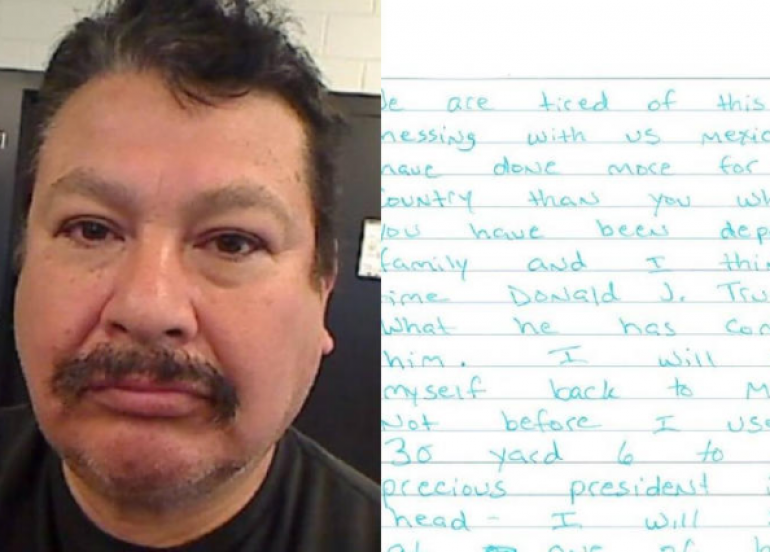 are tired of this
messing with us Mexic
have done more for
country than you wh
you have been dep
family and I thi
Donald J. Tru
what he has com
him. I will
myself back to M
not before I use
30 yard 6 to
precious president i
head - I will